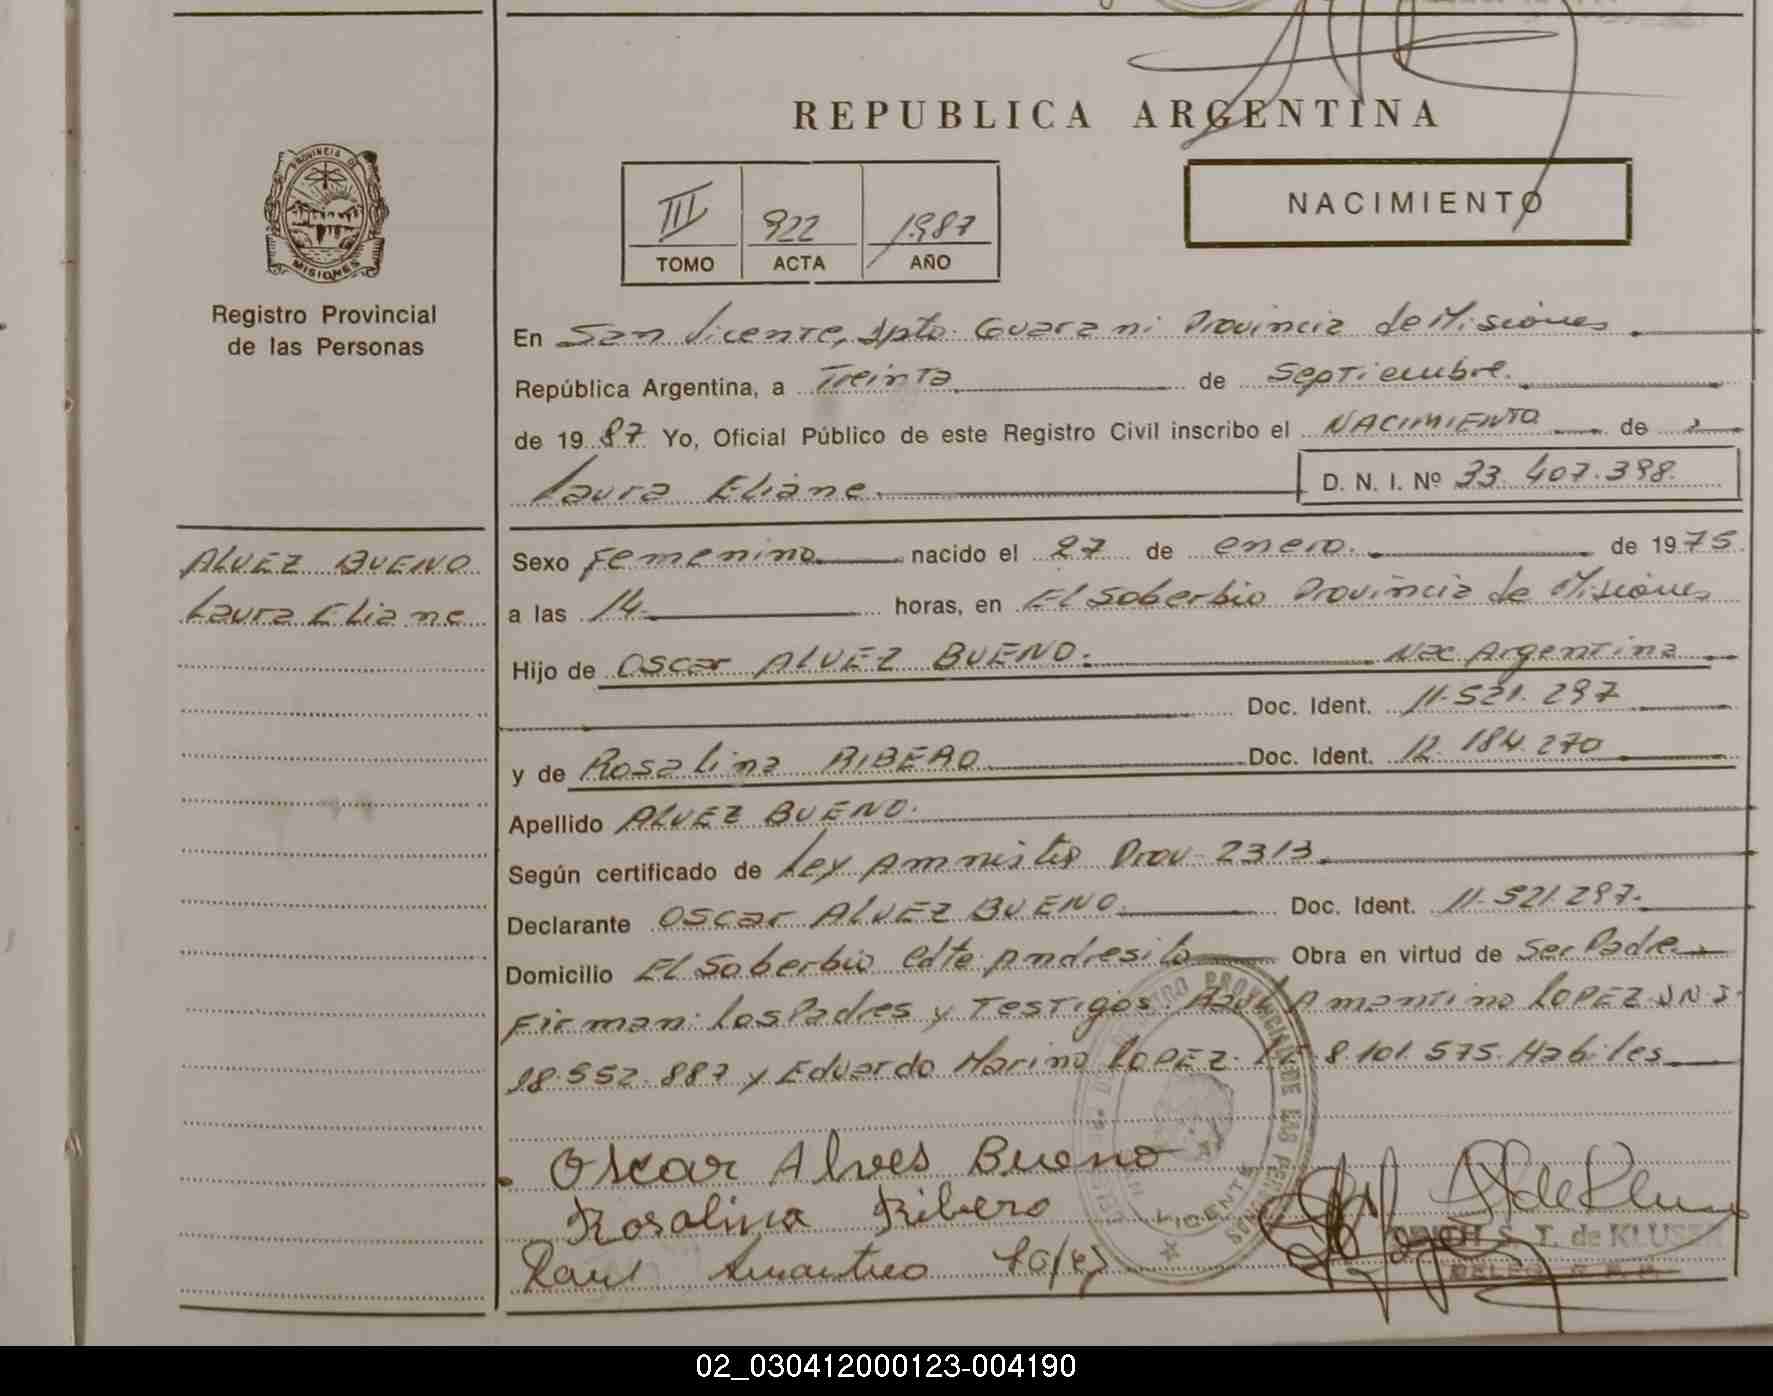 REPUBLICA ARGENTINA
PROVINCIA DE
MISIONES
Registro Provincial
de las Personas
III 922 1987
TOMO ACTA AÑO
NACIMIENTO
En San Vicente, Dpto. Guarani Provincia de Misiones
República Argentina, a Treinta de Septiembre.
de 19 87 Yo, Oficial Público de este Registro Civil inscribo el NACIMIENTO de
Laura Eliane. D. N. I. Nº 33.407.398.
ALVEZ BUENO
Laura Eliane
Sexo Femenino nacido el 27 de enero. de 1975
a las 14 horas, en El Soberbio Provincia de Misiones
Hijo de Oscar ALVEZ BUENO. Nac Argentina
Doc. Ident. 11.521.297
y de Rosalina RIBERO Doc. Ident. 12.184.270
Apellido ALVEZ BUENO.
Según certificado de Ley Amnistia Prov. 2313
Declarante Oscar ALVEZ BUENO Doc. Ident. 11.521.297.
Domicilio El Soberbio Obra en virtud de Ser Padre
Firman: Los Padres y Testigos. Raul Amantino LOPEZ D.N.I.
18.552.887 y Eduardo Marino LOPEZ. 8.101.575. Habiles
Oscar Alves Bueno
Rosalina Ribero
Raul Amantino
S. T. de KLUSE
02_030412000123-004190